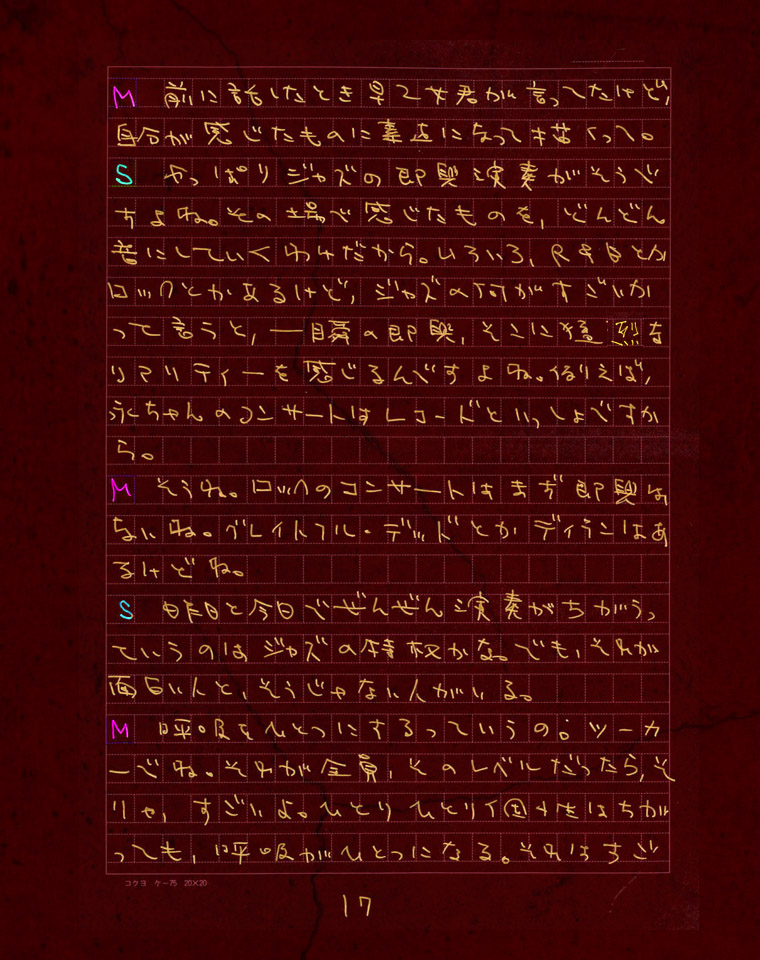 M 前に話したとき早乙女君が言ってたけど,
自分が感じたものに素直になって描くって。
S やっぱりジャズの即興演奏がそうで
すよね。その場で感じたものを,どんどん
音にしていくわけだから。いろいろ,R&Bとか
ロックとかあるけど,ジャズの何がすごいか
って言うと,一瞬の即興,そこに強烈な
リアリティーを感じるんですよね。例えば,
永ちゃんのコンサートはレコードといっしょですか
ら。
M そうね。ロックのコンサートはまず即興は
ないね。グレイトフル・デッドとかディランはあ
るけどね。
S 昨日と今日でぜんぜん演奏がちがうっ
ていうのはジャズの特权かな。でも,それが
面白い人と,そうじゃない人がいる。
M 呼吸をひとつにするっていうの。ツーカ
ーでね。それが全員,そのレベルだったら,そ
りゃ,すごいよ。ひとりひとり個性はちが
っても,呼吸がひとつになる。それはすご
コクヨ ケー75 20×20
17